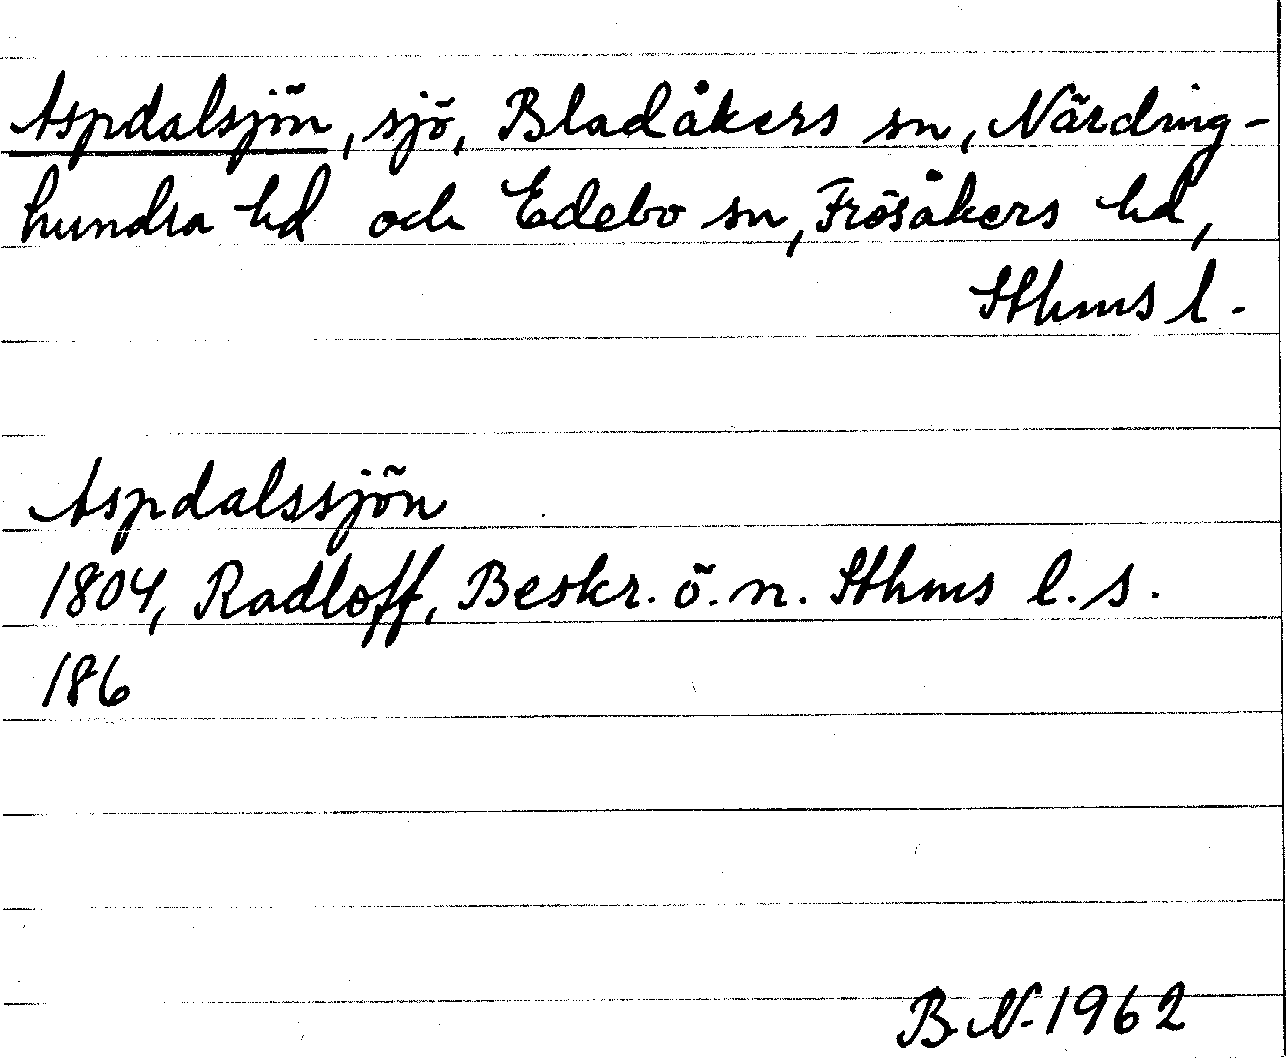 Aspdalsjön, sjö, Bladåkers sn, Närding-
hundra hd och Edebo sn, Frösåkers hd,
Sthms l.
Aspdalssjön
1804, Radloff, Beskr. ö. n. Sthms l. s.
186
B.N. 1962